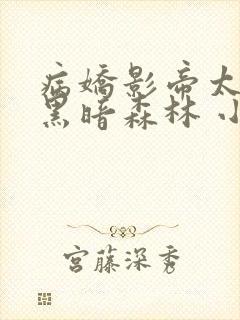 病嬌影帝太
黑暗森林 小
宮藤深秀